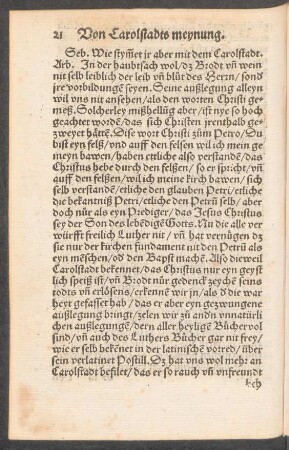 21 Von Carolstadts meynung.
Seb. Wie stym̃et jr aber mit dem Carolstadt.
Arb. In der haubtsach wol / dz Brodt vñ wein
nit selb leiblich der leib vñ blůt des Herrn / sond
jre vorbildungẽ seyen. Seine außlegung alleyn
wil vns nit ansehen / als den worten Christi ge-
meß. Solcherley mißhellũg aber / ist nye so hoch
geacht wordẽ / das sich Christen jrenthalb ge-
zweyet hättẽ. Dise wort Christi zům Petro / Du
bist eyn felß / vnd auff den felsen wil ich mein ge
meyn bawen / haben ettliche also verstandẽ / das
Christus hebe durch den felsen / so er spricht / vñ
auff den felßẽ / wil ich meine kirch bawen / sich
selb verstandẽ / etliche den glauben Petri / etliche
die bekantniß Petri / etliche den Petrũ selb / aber
doch nůr als eyn Prediger / das Jesus Christus
sey der Son des lebẽdigẽ Gotts. Nu die alle ver
würfft freilich Luther nit / vñ hat vernügen dz
sie nur der kirchen fundament nit den Petrũ als
eyn mẽschen / oď den Bapst machẽ. Also dieweil
Carolstadt bekennet / das Christus nur eyn geyst
lich speiß ist / vñ Brodt nůr gedenckzeychẽ seins
todts vñ erlösens / erkennẽ wir jn / als ď die war
heyt gefasset hab / das er aber eyn gezwungene
außlegung bringt / zelen wir zu andn vnnatürli
chen außlegungẽ / dern aller heylige Bůcher vol
sind / vñ auch des Luthers Bůcher gar nit frey /
wie er selb bekẽnet in der latinischẽ vorred / über
sein verlatinet Postill. Dz hat vns wol mehr an
Carolstadt befilet / das er so rauch vñ vnfreundt
lich